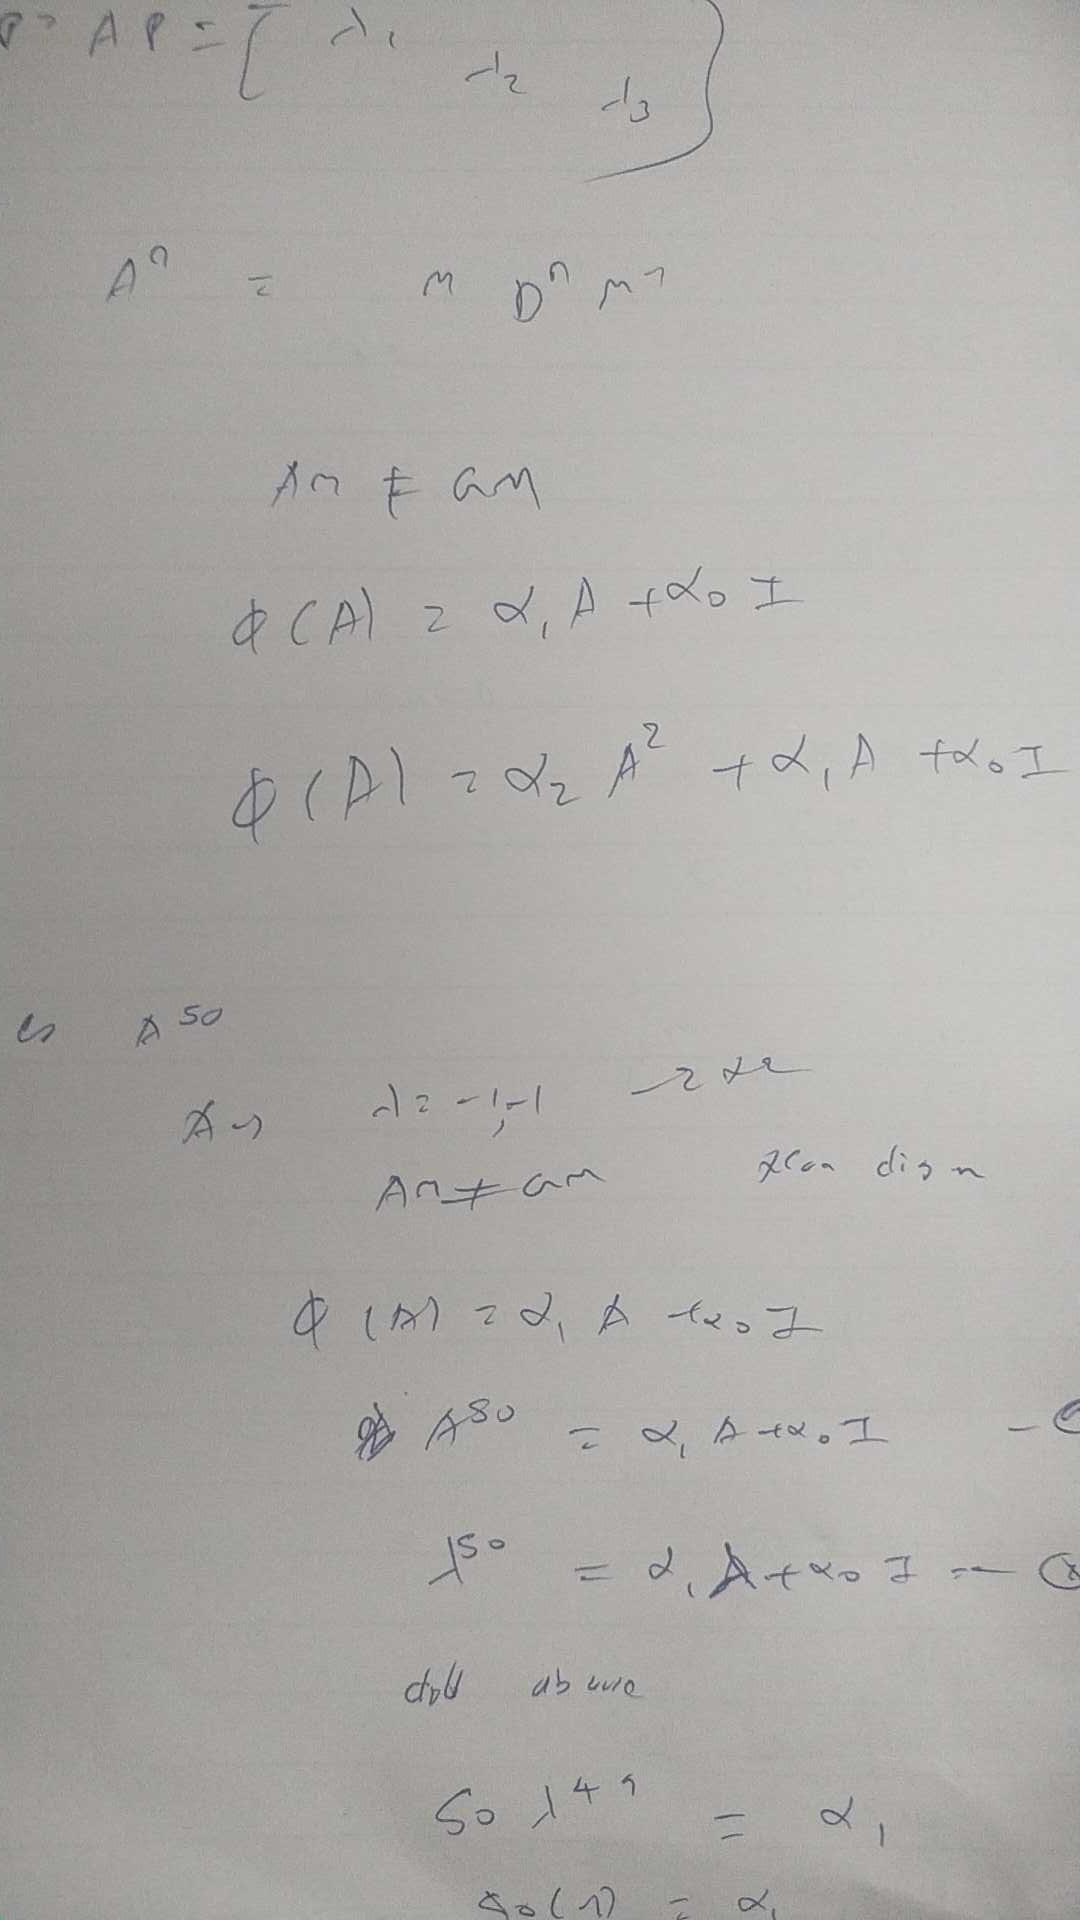 AP = [ λ₁
λ₂
λ₃ ]
Aⁿ = M Dⁿ M⁻¹
AM ≠ GM
φ(A) = α₁ A + α₀ I
φ(A) = α₂ A² + α₁ A + α₀ I
A⁵⁰
A → λ = -1, -1 → 2x2
AM ≠ GM
φ(A) = α₁ A + α₀ I
A⁵⁰ = α₁ A + α₀ I -
λ⁵⁰ = α₁ λ + α₀ I -
diff above
50 λ⁴⁹ = α₁
= α₁